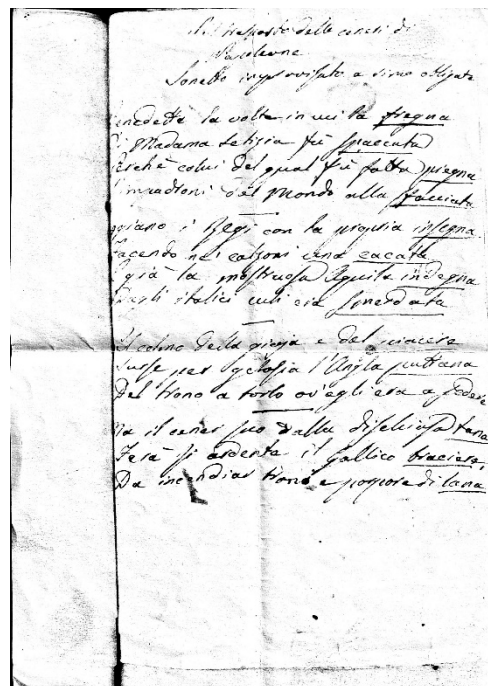 Pel trasporto delle ceneri di
Napoleone
Sonetto improvvisato a rime obbligate
enedetta la volta in cui la fregna
i Madama Letizia fù spaccata
erchè colui del qual fù fatta pregna
impadronì del Mondo alla facciata
ggiano i Regi con la propria insegna
acendo ne' calzoni una cacata
già la mostruosa Aquila indegna
Dagli italici culi era
Al colmo della gioja e del piacere
Surse per gelosia l'Angla puttana
Del trono a torlo ov'egli era a sedere
Ma il cener suo dalla tana
Farà sì ardente il Gallico braciere,
Da incendiar troni e porpore di lana